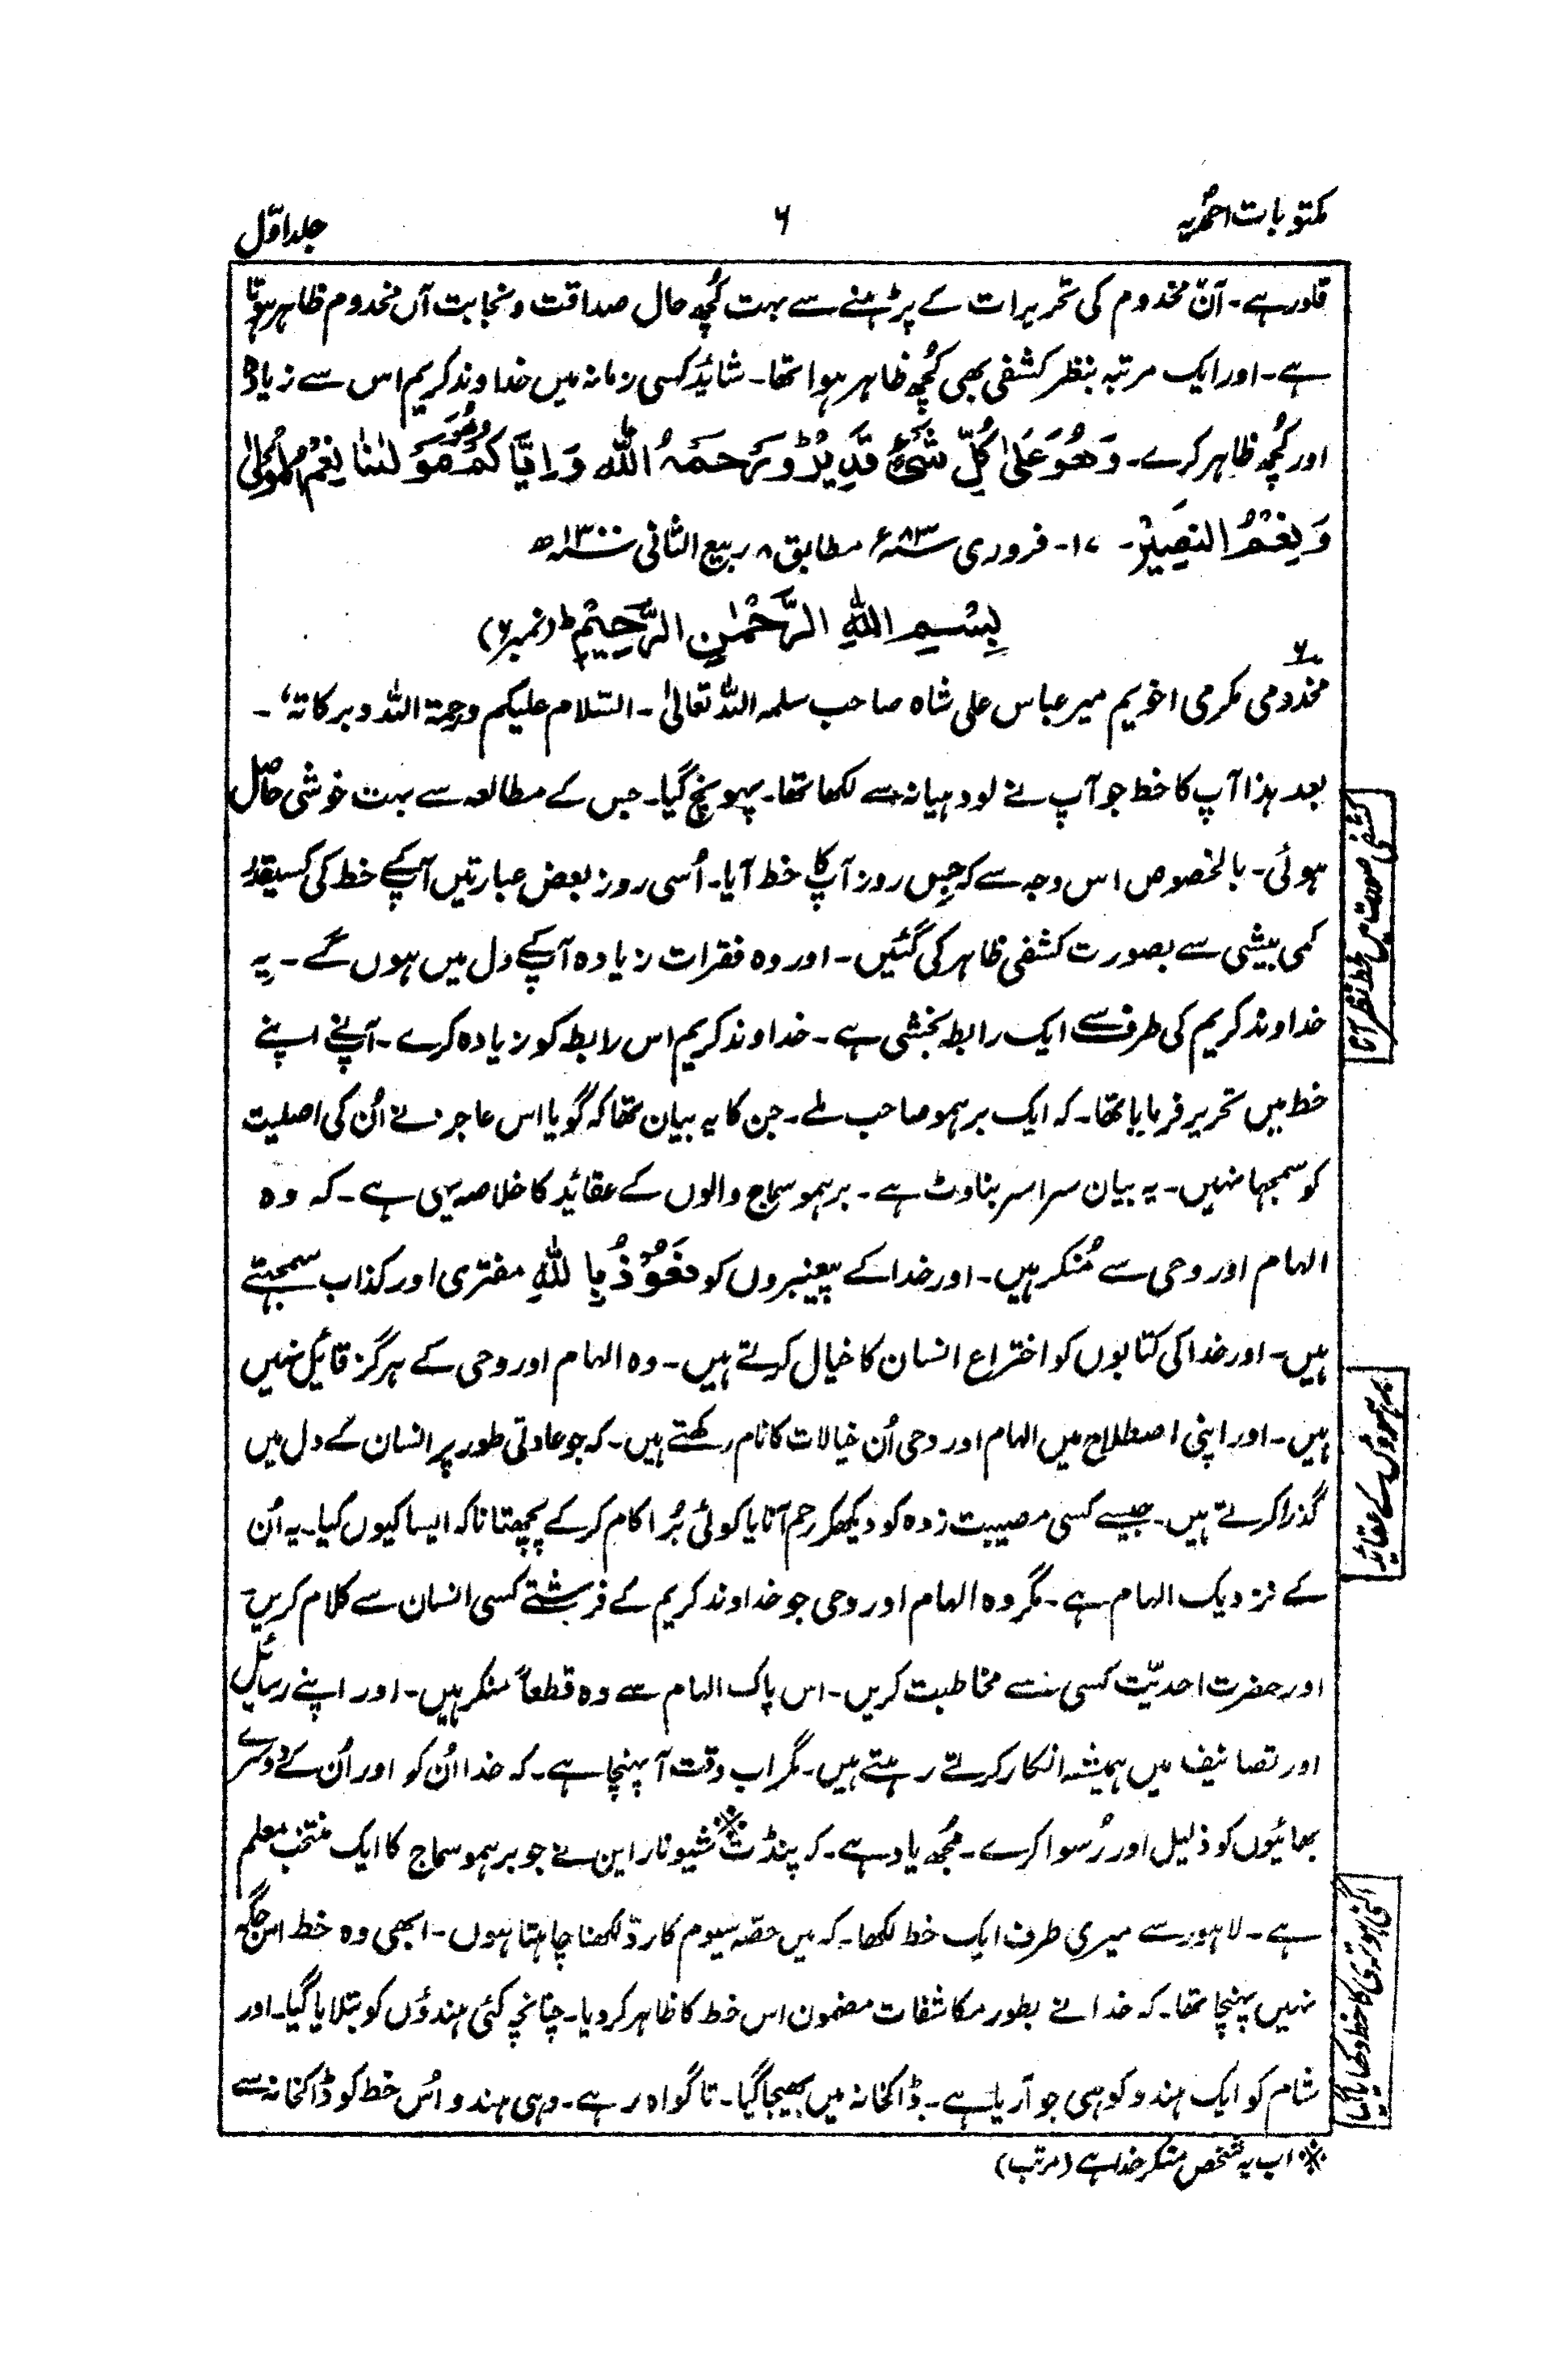 مکتوبات احمدیہ
۶
جلد اوّل
قادر ہے۔ آں مخدوم کی تحریرات کے پڑہنے سے بہت کُچھ حال صداقت و نجابت آں مخدوم ظاہر ہوتا
ہے۔ اور ایک مرتبہ بنظر کشفی بھی کُچھ ظاہر ہوا تھا۔ شائد کسی زمانہ میں خداوند کریم اس سے زیادہ
اور کُچھ ظاہر کرے۔ وَھُوَ عَلیٰ کُلِّ شَیْءٍ قَدِیْرٌ وَرَحِمَہُ اللّٰہ وَ اِیَّاکُمْ وَھُوَ مَوْلٰنَا نِعْمَ الْمَوْلٰی
وَ نِعْمَ النَّصِیْر۔ ۱۷۔ فروری ۸۳ء مطابق ۸ ربیع الثانی ۱۳۰۰ھ
بِسْمِ اللّٰہِ الرَّحْمٰنِ الرَّحِیْمِ ط (نمبر ۶)
۶
مخدومی مکرمی اخویم میر عباس علی شاہ صاحب سلمہ اللہ تعالیٰ۔ السّلام علیکم ورحمۃ اللہ وبرکاتہ‘۔
بعد ہذا آپ کا خط جو آپ نے لودہیانہ سے لکھا تھا۔ پہونچ گیا۔ جس کے مطالعہ سے بہت خوشی حاصل
ہوئی۔ بالخصوص اس وجہ سے کہ جس روز آپ کا خط آیا۔ اُسی روز بعض عبارتیں آپکے خط کی کسیقدر
کمی بیشی سے بصورت کشفی ظاہر کی گئیں۔ اور وہ فقرات زیادہ آپکے دل میں ہوں گے۔ یہ
خداوند کریم کی طرف سے ایک رابطہ بخشی ہے۔ خداوند کریم اس رابط کو زیادہ کرے۔ آپنے اپنے
خط میں تحریر فرمایا تھا۔ کہ ایک برہمو صاحب ملے۔ جن کا یہ بیان تھا کہ گویا اس عاجز نے اُن کی اصلیت
کو سمجہا نہیں۔ یہ بیان سراسر بناوٹ ہے۔ برہمو سماج والوں کے عقائد کا خلاصہ یہی ہے۔ کہ وہ
الہام اور وحی سے مُنکر ہیں۔ اور خدا کے پیغمبروں کو نَعُوْذُ بِاللّٰہِ مفتری اور کذاب سمجہتے
ہیں۔ اور خدا کی کتابوں کو اختراع انسان کا خیال کرتے ہیں۔ وہ الہام اور وحی کے ہرگز قائیل نہیں
ہیں۔ اور اپنی اصطلاح میں الہام اور وحی اُن خیالات کا نام رکھتے ہیں۔ کہ جو عادتی طور پر انسان کے دل میں
گذرا کرتے ہیں۔ جیسے کسی مصیبت زدہ کو دیکھکر رحم آنا یا کوئی بُرا کام کرکے پچھتانا کہ ایسا کیوں کیا۔ یہ اُن
کے نزدیک الہام ہے۔ مگر وہ الہام اور وحی جو خداوند کریم کے فرشتے کسی انسان سے کلام کریں
اور حضرت احدیّت کسی سے مخاطبت کریں۔ اس پاک الہام سے وہ قطعاً منکر ہیں۔ اور اپنے رسائل
اور تصانیف میں ہمیشہ انکار کرتے رہتے ہیں۔ مگر اب وقت آ پہنچا ہے۔ کہ خدا اُن کو اور اُن کے دوسرے
بھائیوں کو ذلیل اور رُسوا کرے۔ مُجھے یاد ہے۔ کہ پنڈت※ شیونارائن نے جو برہمو سماج کا ایک منتخب معلم
ہے۔ لاہور سے میری طرف ایک خط لکھا۔ کہ میں حصّہ سیوم کا ردّ لکھنا چاہتا ہوں۔ ابھی وہ خط اس جگہ
نہیں پہنچا تھا۔ کہ خدا نے بطور مکاشفات مضمون اس خط کا ظاہر کر دیا۔ چنانچہ کئی ہندؤں کو بتلایا گیا۔ اور
شام کو ایک ہندو کو ہی جو آریا ہے۔ ڈاکخانہ میں بھیجا گیا۔ تا گواہ رہے۔ وہی ہندو اُس خط کو ڈاکخانہ سے
※ اب یہ شخص منکر خدا ہے (مرتب)
کشفی صورت میں خط نظر آنا
برہموؤں کے عقائد
اگنی ہوتری کا خط دکھایا گیا